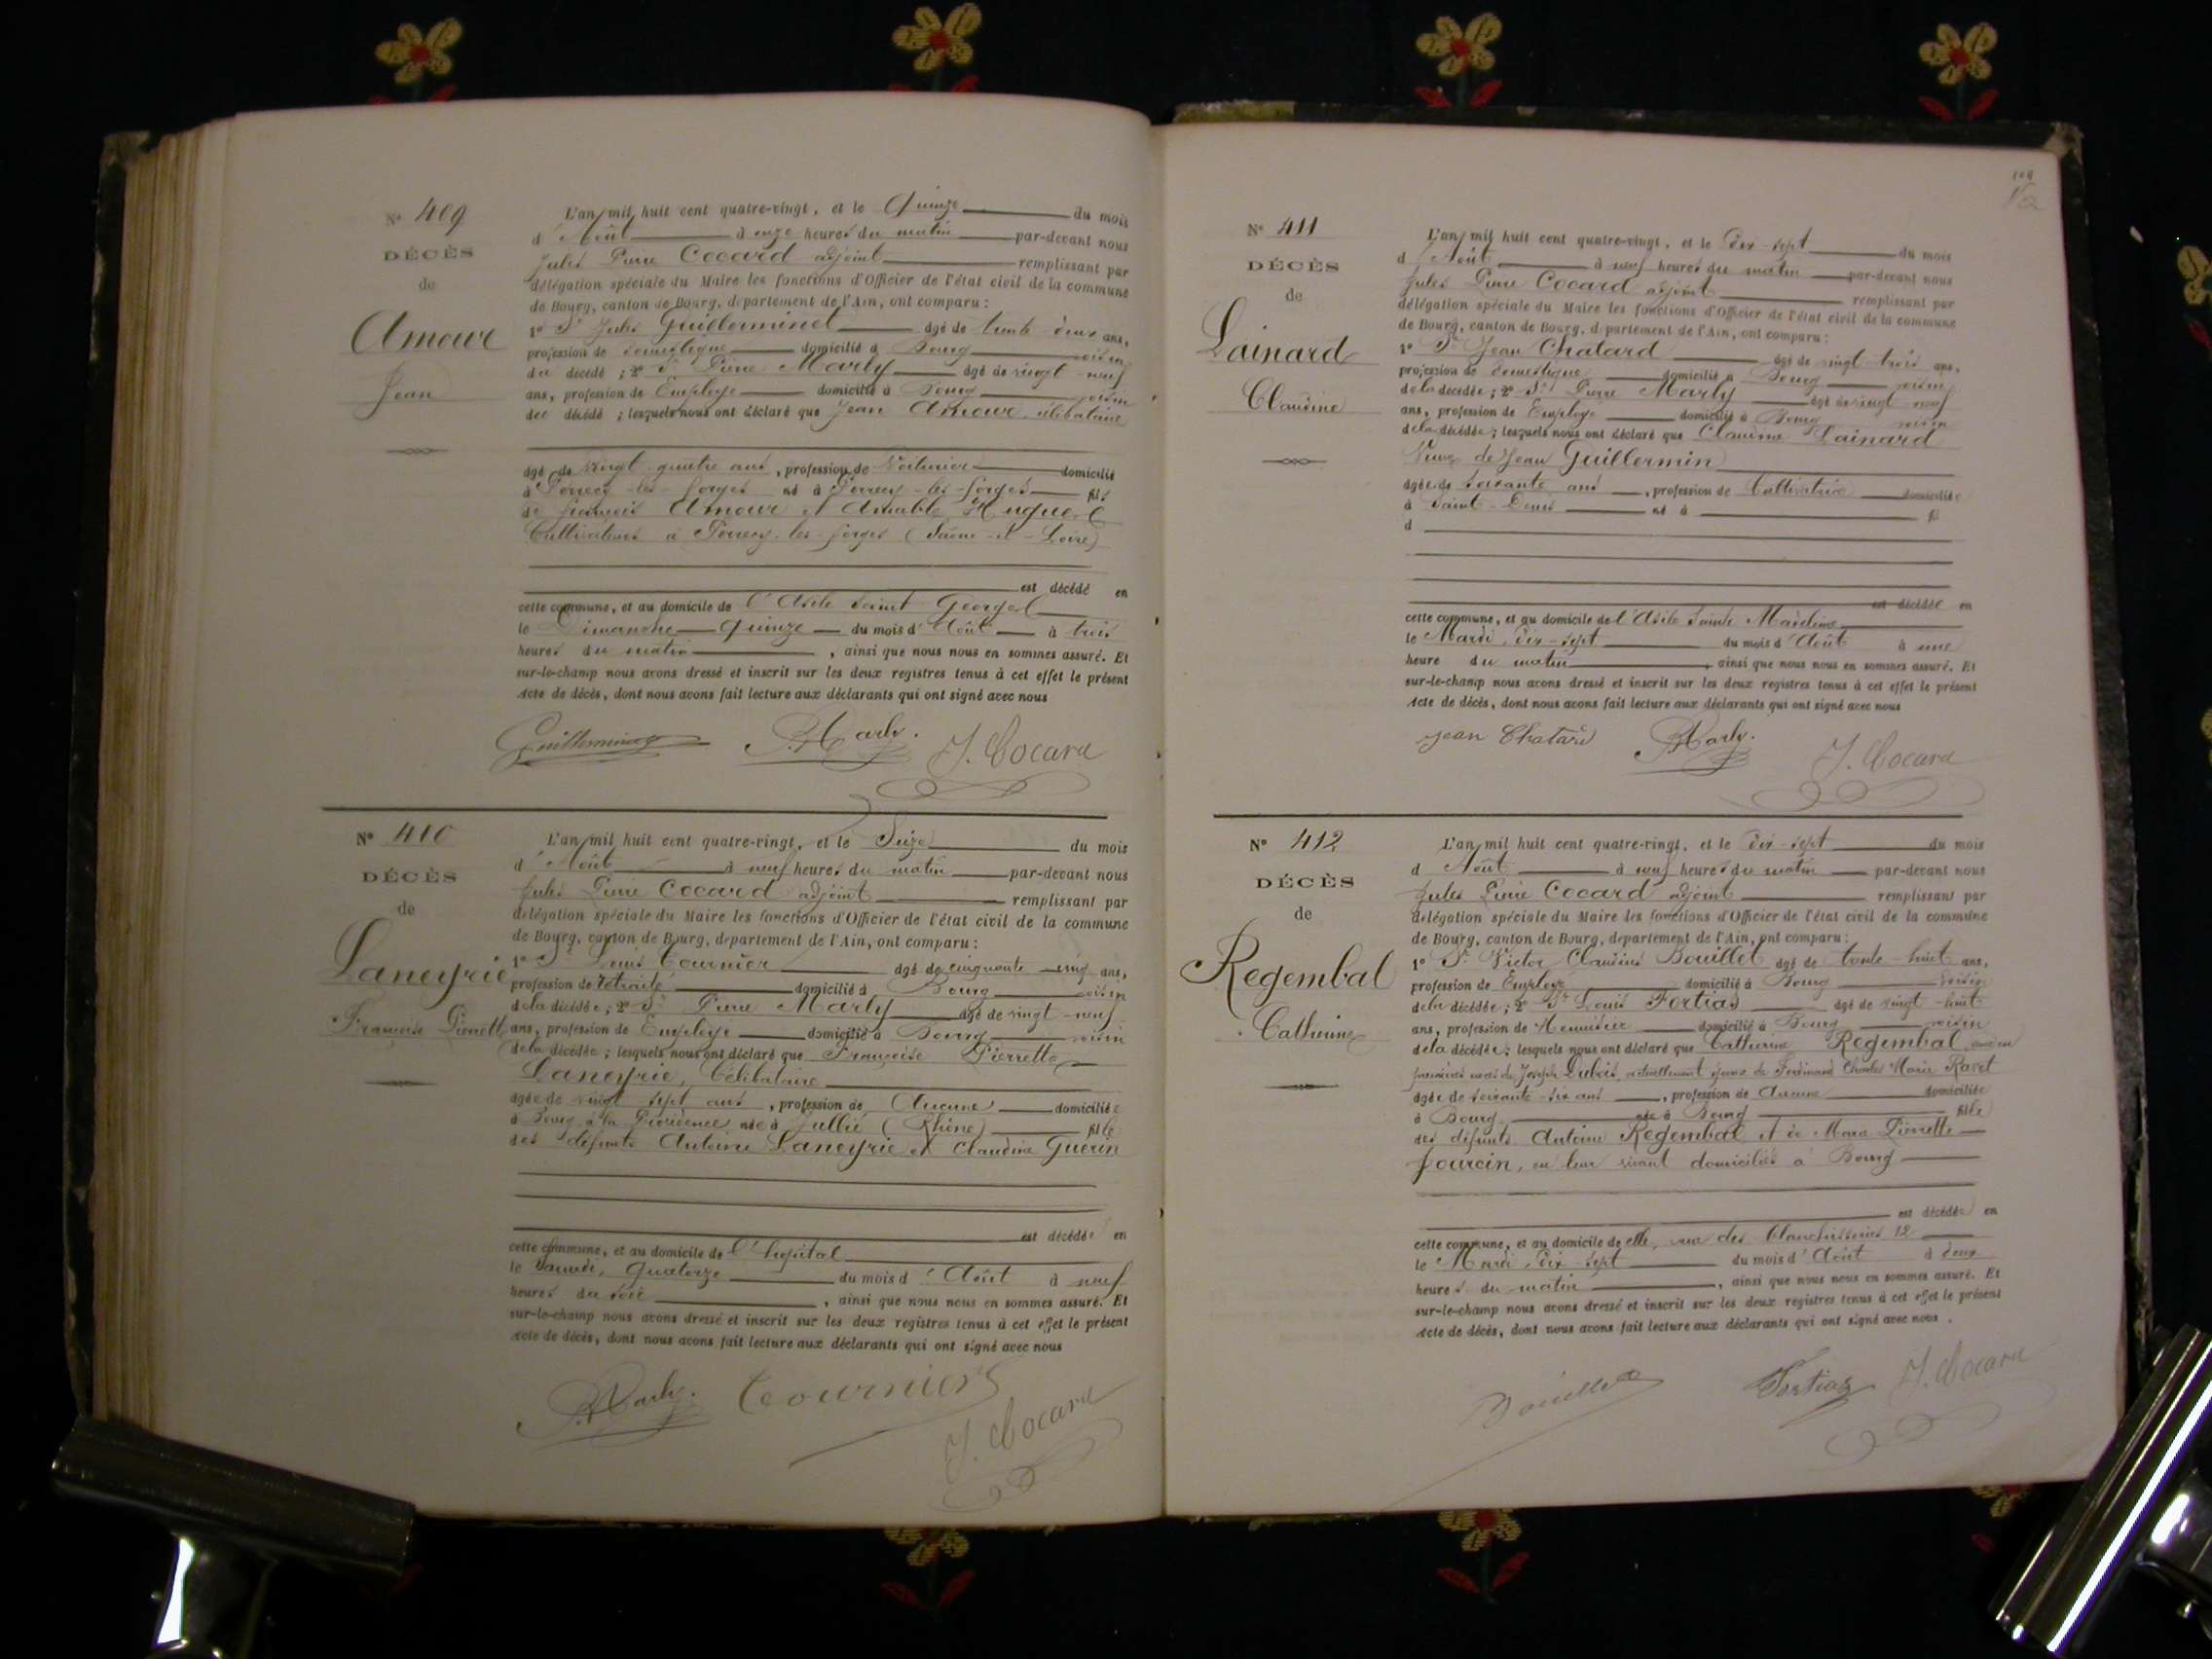 N° 409
DÉCÈS
de
Amour
Jean
L'an mil huit cent quatre-vingt, et le Quinze du mois
d'Août à onze heures du matin par-devant nous
Jules Pierre Cocard adjoint remplissant par
délégation spéciale du Maire les fonctions d'Officier de l'état civil de la commune
de Bourg, canton de Bourg, département de l'Ain, ont comparu :
1° Sr Jules Guillerminet âgé de trente deux ans,
profession de domestique domicilié à Bourg voisin
du décédé ; 2° Sr Pierre Marly âgé de vingt neuf
ans, profession de Employé domicilié à Bourg voisin
du décédé ; lesquels nous ont déclaré que Jean Amour, célibataire
âgé de vingt quatre ans, profession de Voiturier domicilié
à Perrecy-les-forges né à Perrecy-les-forges fils
de François Amour et Amable Huguet
Cultivateurs à Perrecy-les-forges (Saône-et-Loire)
est décédé en
cette commune, et au domicile de l'Asile Saint Georges
le Dimanche Quinze du mois d'Août à trois
heures du matin, ainsi que nous nous en sommes assuré. Et
sur-le-champ nous avons dressé et inscrit sur les deux registres tenus à cet effet le présent
Acte de décès, dont nous avons fait lecture aux déclarants qui ont signé avec nous
Guillerminet P. Marly. J. Cocard
N° 410
DÉCÈS
de
Laneyrie
Françoise Pierrette
L'an mil huit cent quatre-vingt, et le Seize du mois
d'Août à neuf heures du matin par-devant nous
Jules Pierre Cocard adjoint remplissant par
délégation spéciale du Maire les fonctions d'Officier de l'état civil de la commune
de Bourg, canton de Bourg, département de l'Ain, ont comparu :
1° Sr Louis Tournier âgé de cinquante cinq ans,
profession de retraité domicilié à Bourg voisin
de la décédée ; 2° Sr Pierre Marly âgé de vingt neuf
ans, profession de Employé domicilié à Bourg voisin
de la décédée ; lesquels nous ont déclaré que Françoise Pierrette
Laneyrie, Célibataire
âgée de vingt sept ans, profession de Aucune domiciliée
à Bourg à la Providence, née à Jullié (Rhône) fille
des défunts Antoine Laneyrie et Claudine Guérin
est décédée en
cette commune, et au domicile de l'hôpital
le Samedi, Quatorze du mois d'Août à neuf
heures du soir, ainsi que nous nous en sommes assuré. Et
sur-le-champ nous avons dressé et inscrit sur les deux registres tenus à cet effet le présent
Acte de décès, dont nous avons fait lecture aux déclarants qui ont signé avec nous
P. Marly. Tournier
J. Cocard
109
N° 411
DÉCÈS
de
Lainard
Claudine
L'an mil huit cent quatre-vingt, et le Dix-sept du mois
d'Août à neuf heures du matin par-devant nous
Jules Pierre Cocard adjoint remplissant par
délégation spéciale du Maire les fonctions d'Officier de l'état civil de la commune
de Bourg, canton de Bourg, département de l'Ain, ont comparu :
1° Sr Jean Chatard âgé de vingt trois ans,
profession de domestique domicilié à Bourg voisin
de la décédée ; 2° Sr Pierre Marly âgé de vingt neuf
ans, profession de Employé domicilié à Bourg voisin
de la décédée ; lesquels nous ont déclaré que Claudine Lainard
Veuve de Jean Guillermin
âgée de soixante ans, profession de Cultivatrice domiciliée
à Saint-Denis né à fil
d
est décédée en
cette commune, et au domicile de l'Asile Sainte Madeleine
le Mardi, dix-sept du mois d'Août à une
heure du matin, ainsi que nous nous en sommes assuré. Et
sur-le-champ nous avons dressé et inscrit sur les deux registres tenus à cet effet le présent
Acte de décès, dont nous avons fait lecture aux déclarants qui ont signé avec nous
Jean Chatard P. Marly. J. Cocard
N° 412
DÉCÈS
de
Regembal
Catherine
L'an mil huit cent quatre-vingt, et le Dix-sept du mois
d'Août à neuf heures du matin par-devant nous
Jules Pierre Cocard adjoint remplissant par
délégation spéciale du Maire les fonctions d'Officier de l'état civil de la commune
de Bourg, canton de Bourg, département de l'Ain, ont comparu :
1° Sr Victor Claudius Bouillet âgé de trente-huit ans,
profession de Employé domicilié à Bourg voisin
de la décédée ; 2° Sr Louis Fortias âgé de vingt-huit
ans, profession de Menuisier domicilié à Bourg voisin
de la décédée ; lesquels nous ont déclaré que Catherine Regembal
de Joseph Dubois, actuellement épouse de Ferdinand Charles Marie Ravet
âgée de soixante-dix ans, profession de Aucune domiciliée
à Bourg née à Bourg fille
des défunts Antoine Regembal et de Marie Pierrette
Fourcin, en leur vivant domiciliés à Bourg
est décédée en
cette commune, et au domicile de elle, rue des Blanchisseries 12
le Mardi, dix-sept du mois d'Août à deux
heures du matin, ainsi que nous nous en sommes assuré. Et
sur-le-champ nous avons dressé et inscrit sur les deux registres tenus à cet effet le présent
Acte de décès, dont nous avons fait lecture aux déclarants qui ont signé avec nous.
Bouillet Fortias J. Cocard